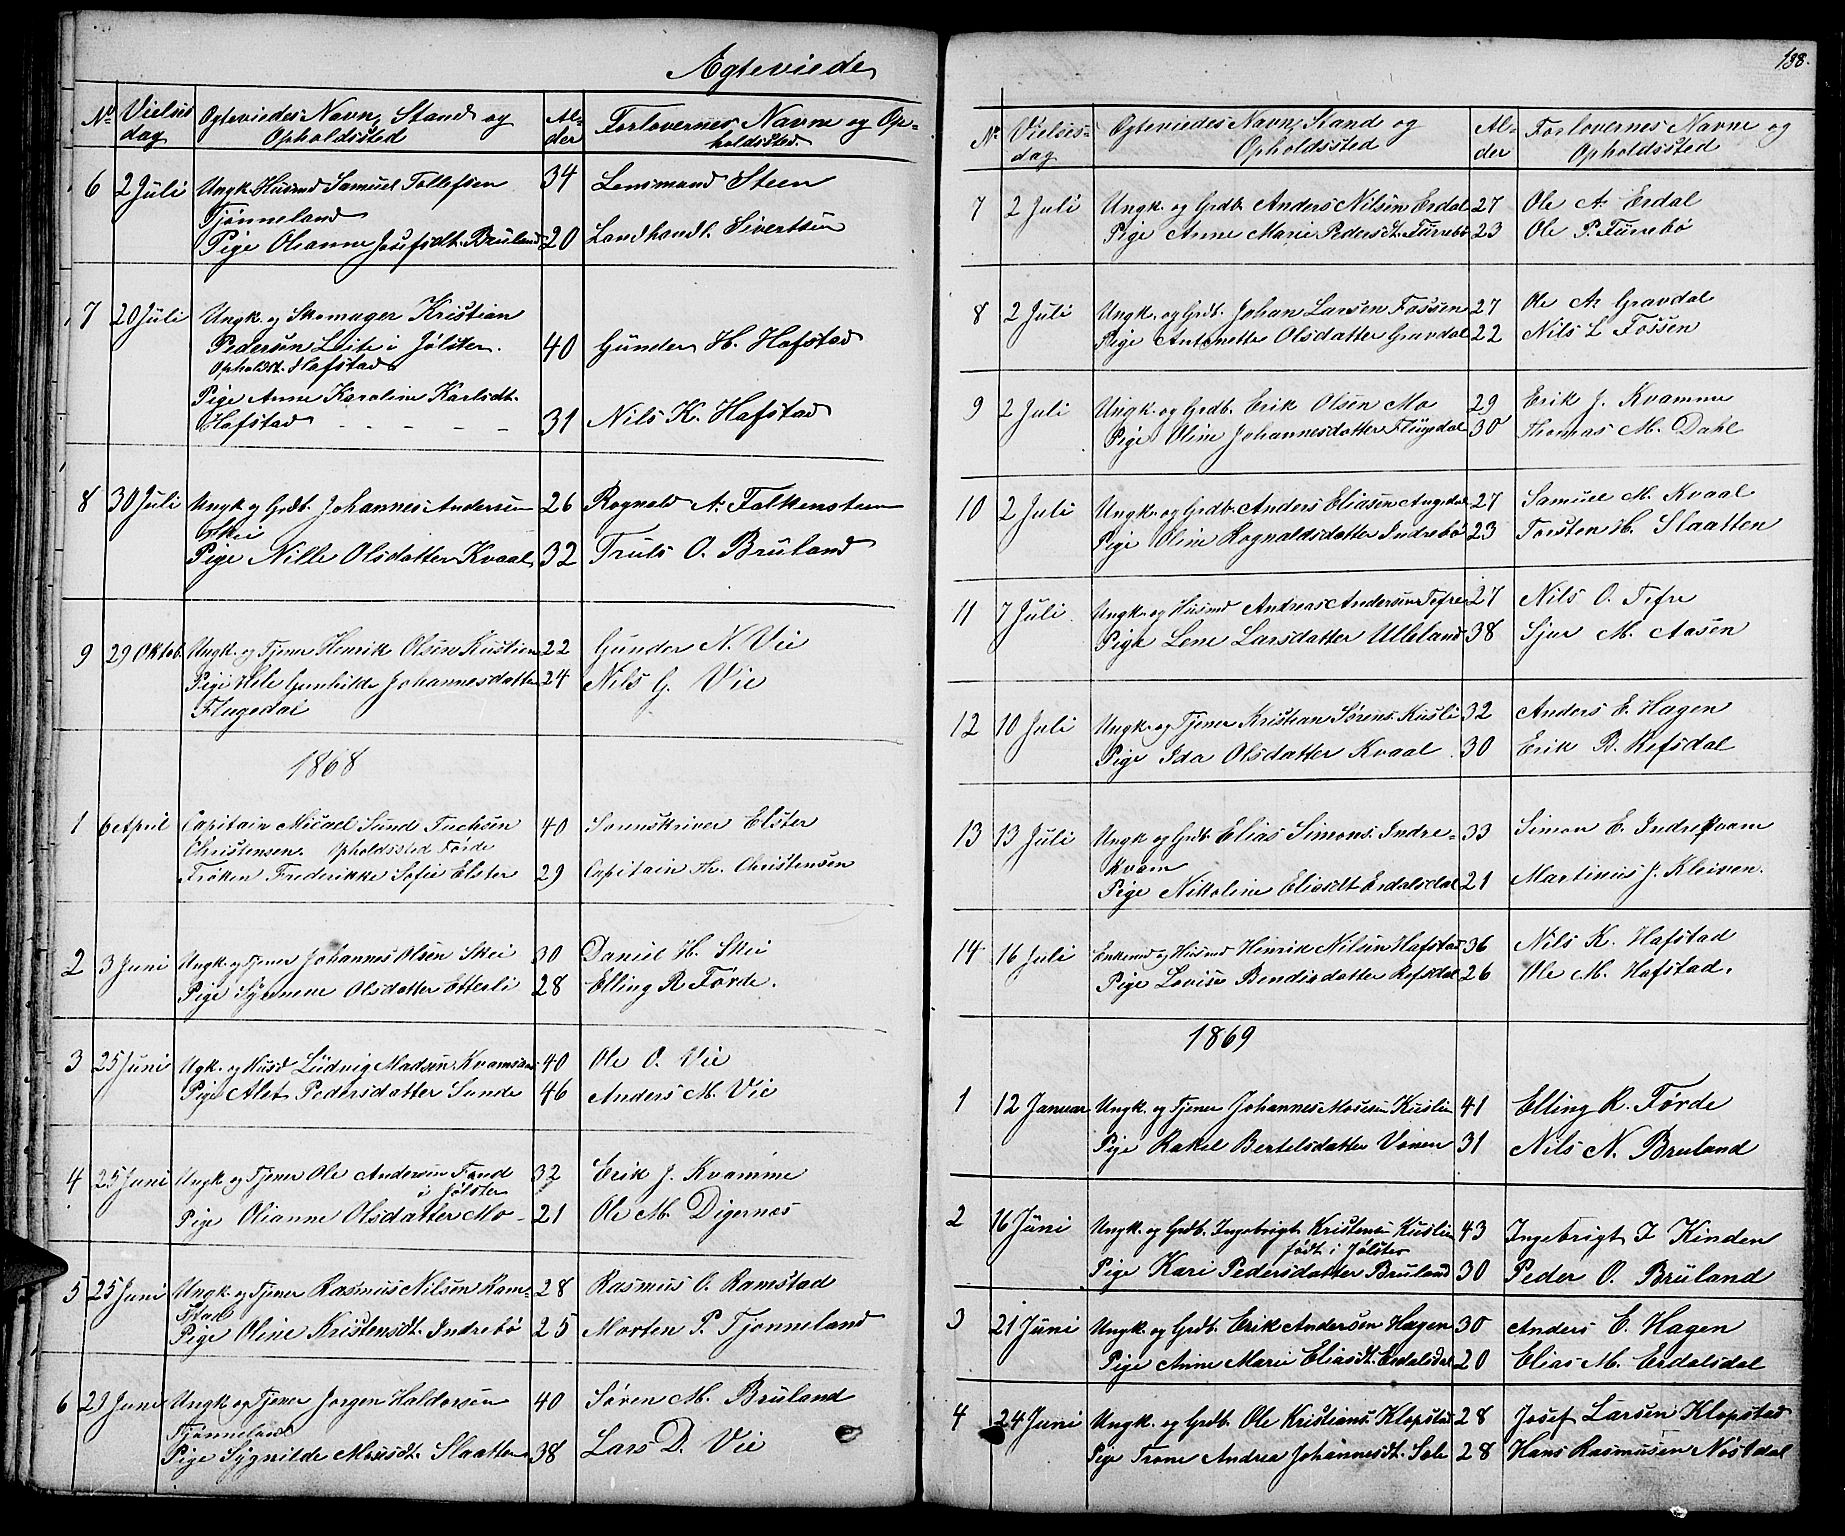 Ægteviede
No Vielses dag Ægteviedes Navn, Stand og Opholdssted Alder Forlovernes Navne og Opholdssted
6 2 Juli Ungk. Husmd Samuel Tollefsen 34 Lensmand Steen
Tjønneland
Pige Olianne Josefsdt. Bruland 20 Landhandl. Sivertsen
7 20 Juli Ungk. og Skomager Kristian
Pedersen Leite i Jølster. 40 Gunder H. Hafstad
Opholdst. Hafstad
Pige Anne Karoline Karlsdt.
Hafstad - - - - - 31 Nils K. Hafstad
8 30 Juli Ungk. og Grdb. Johannes Andersen 26 Rognald A. Falkensteen
Skei
Pige Nille Olsdatter Kvaal 32 Truls O. Bruland
9 29 Oktob. Ungk. og Tjener Henrik Olsen Kuslien 22 Gunder N. Vie
Pige Gunhilde Johannesdatter 24 Nils G. Vie
Flugedal
1868
1 6 April Capitain Micael Sund Tuchsen 40 Sorenskriver Elster
Christensen. Opholdssted Førde
Frøken Frederikke Sofie Elster 29 Capitain Th. Christensen
2 3 Juni Ungk. og Tjener Johannes Olsen Skei 30 Daniel H. Skei
Pige Synneve Olsdatter Etterli 28 Elling R. Førde.
3 25 Juni Ugk. og Husd Ludvig Madsen Kvamsaas 40 Ole O. Vie
Pige Alet Pedersdatter Sunde 46 Anders M. Vie
4 25 Juni Ungk. og Tjener Ole Andersen Fond 32 Erik J. Kvamme
i Jølster
Pige Olianne Olsdatter Mo - 21 Ole M. Digernes
5 25 Juni Ungk. og Tjener Rasmus Nilsen Ram- 28 Rasmus O. Ramstad
stad
Pige Oline Kristensdt. Indrebø 25 Morten P. Tjønneland
6 29 Juni Ungk. og Tjener Jørgen Haldorsen 40 Søren M. Bruland
Tjønneland
Pige Sygnilde Monsdt. Slaatten 38 Lars D. Vie
138.
No Vielses- dag Ægteviedes Navn, Stand og Opholdssted Alder Forlovernes Navne og Opholdssted
7 2 Juli Ungk. og Grdb. Anders Nilsen Erdal 27 Ole A. Erdal
Pige Anne Marie Pedersdt. Furrebø 23 Ole P. Furrebø
8 2 Juli Ungk. og Grdb. Johan Larsen Fossen 27 Ole A. Gravdal
Pige Antonette Olsdatter Gravdal 22 Nils L Fossen
9 2 Juli Ungk. og Grdb. Erik Olsen Mo 29 Erik J. Kvamme
Pige Oline Johannesdatter Flugedal 30 Thomas M. Dahl
10 2 Juli Ungk. og Grdb. Anders Eliasen Angedal 27 Samuel M. Kvaal
Pige Oline Rognaldsdatter Indrebø 23 Torsten H. Slaatten
11 7 Juli. Ungk. og Husmd Andreas Andersen Tefre 27 Nils O. Tefre
Pige Lene Larsdatter Ulleland 38 Sjur M. Aasen
12 10 Juli Ungk. og Tjener Kristian Sørens. Kusli 32 Anders E. Hagen
Pige Ida Olsdatter Kvaal. 30 Erik B. Refsdal
13 13 Juli Ungk. og Grdb. Elias Simons. Indre- 33 Simon E. Indrekvam
kvam
Pige Nikoline Eliasdt Erdalsdal 21 Martinus J. Kleiven.
14 16 Juli Enkemd og Husmd Henrik Nilsen Hafstad 36 Nils K. Hafstad
Pige Lovise Bendixdatter Refsdal 26 Ole M. Hafstad.
1869
1 12 Januar Ungk. og Tjener Johannes Mosesen Kuslien 41 Elling R. Førde
Pige Rakel Bertelsdatter Vonen 31 Nils N. Bruland
2 16 Juni Ungk. og Grdb. Ingebrigt Kristensen Kuslien 43 Ingebrigt I Kinden
født i Jølster
Pige Kari Pedersdatter Bruland 30 Peder O. Bruland
3 21 Juni Ungk. og Grdb. Erik Andersen Hagen 30 Anders E. Hagen
Pige Anne Marie Eliasdt. Erdalsdal 20 Elias M. Erdalsdal
4 24 Juni Ungk. og Grdb. Ole Kristians. Klopstad 28 Josef Larsen Klopstad
Pige Trone Andrea Johannesdt. Sole 28 Hans Rasmusen Nøstdal